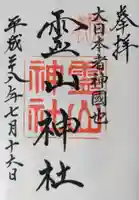 奉拝
大日本者神國也
霊山神社
霊山
神社
平成二十八年七月十六日